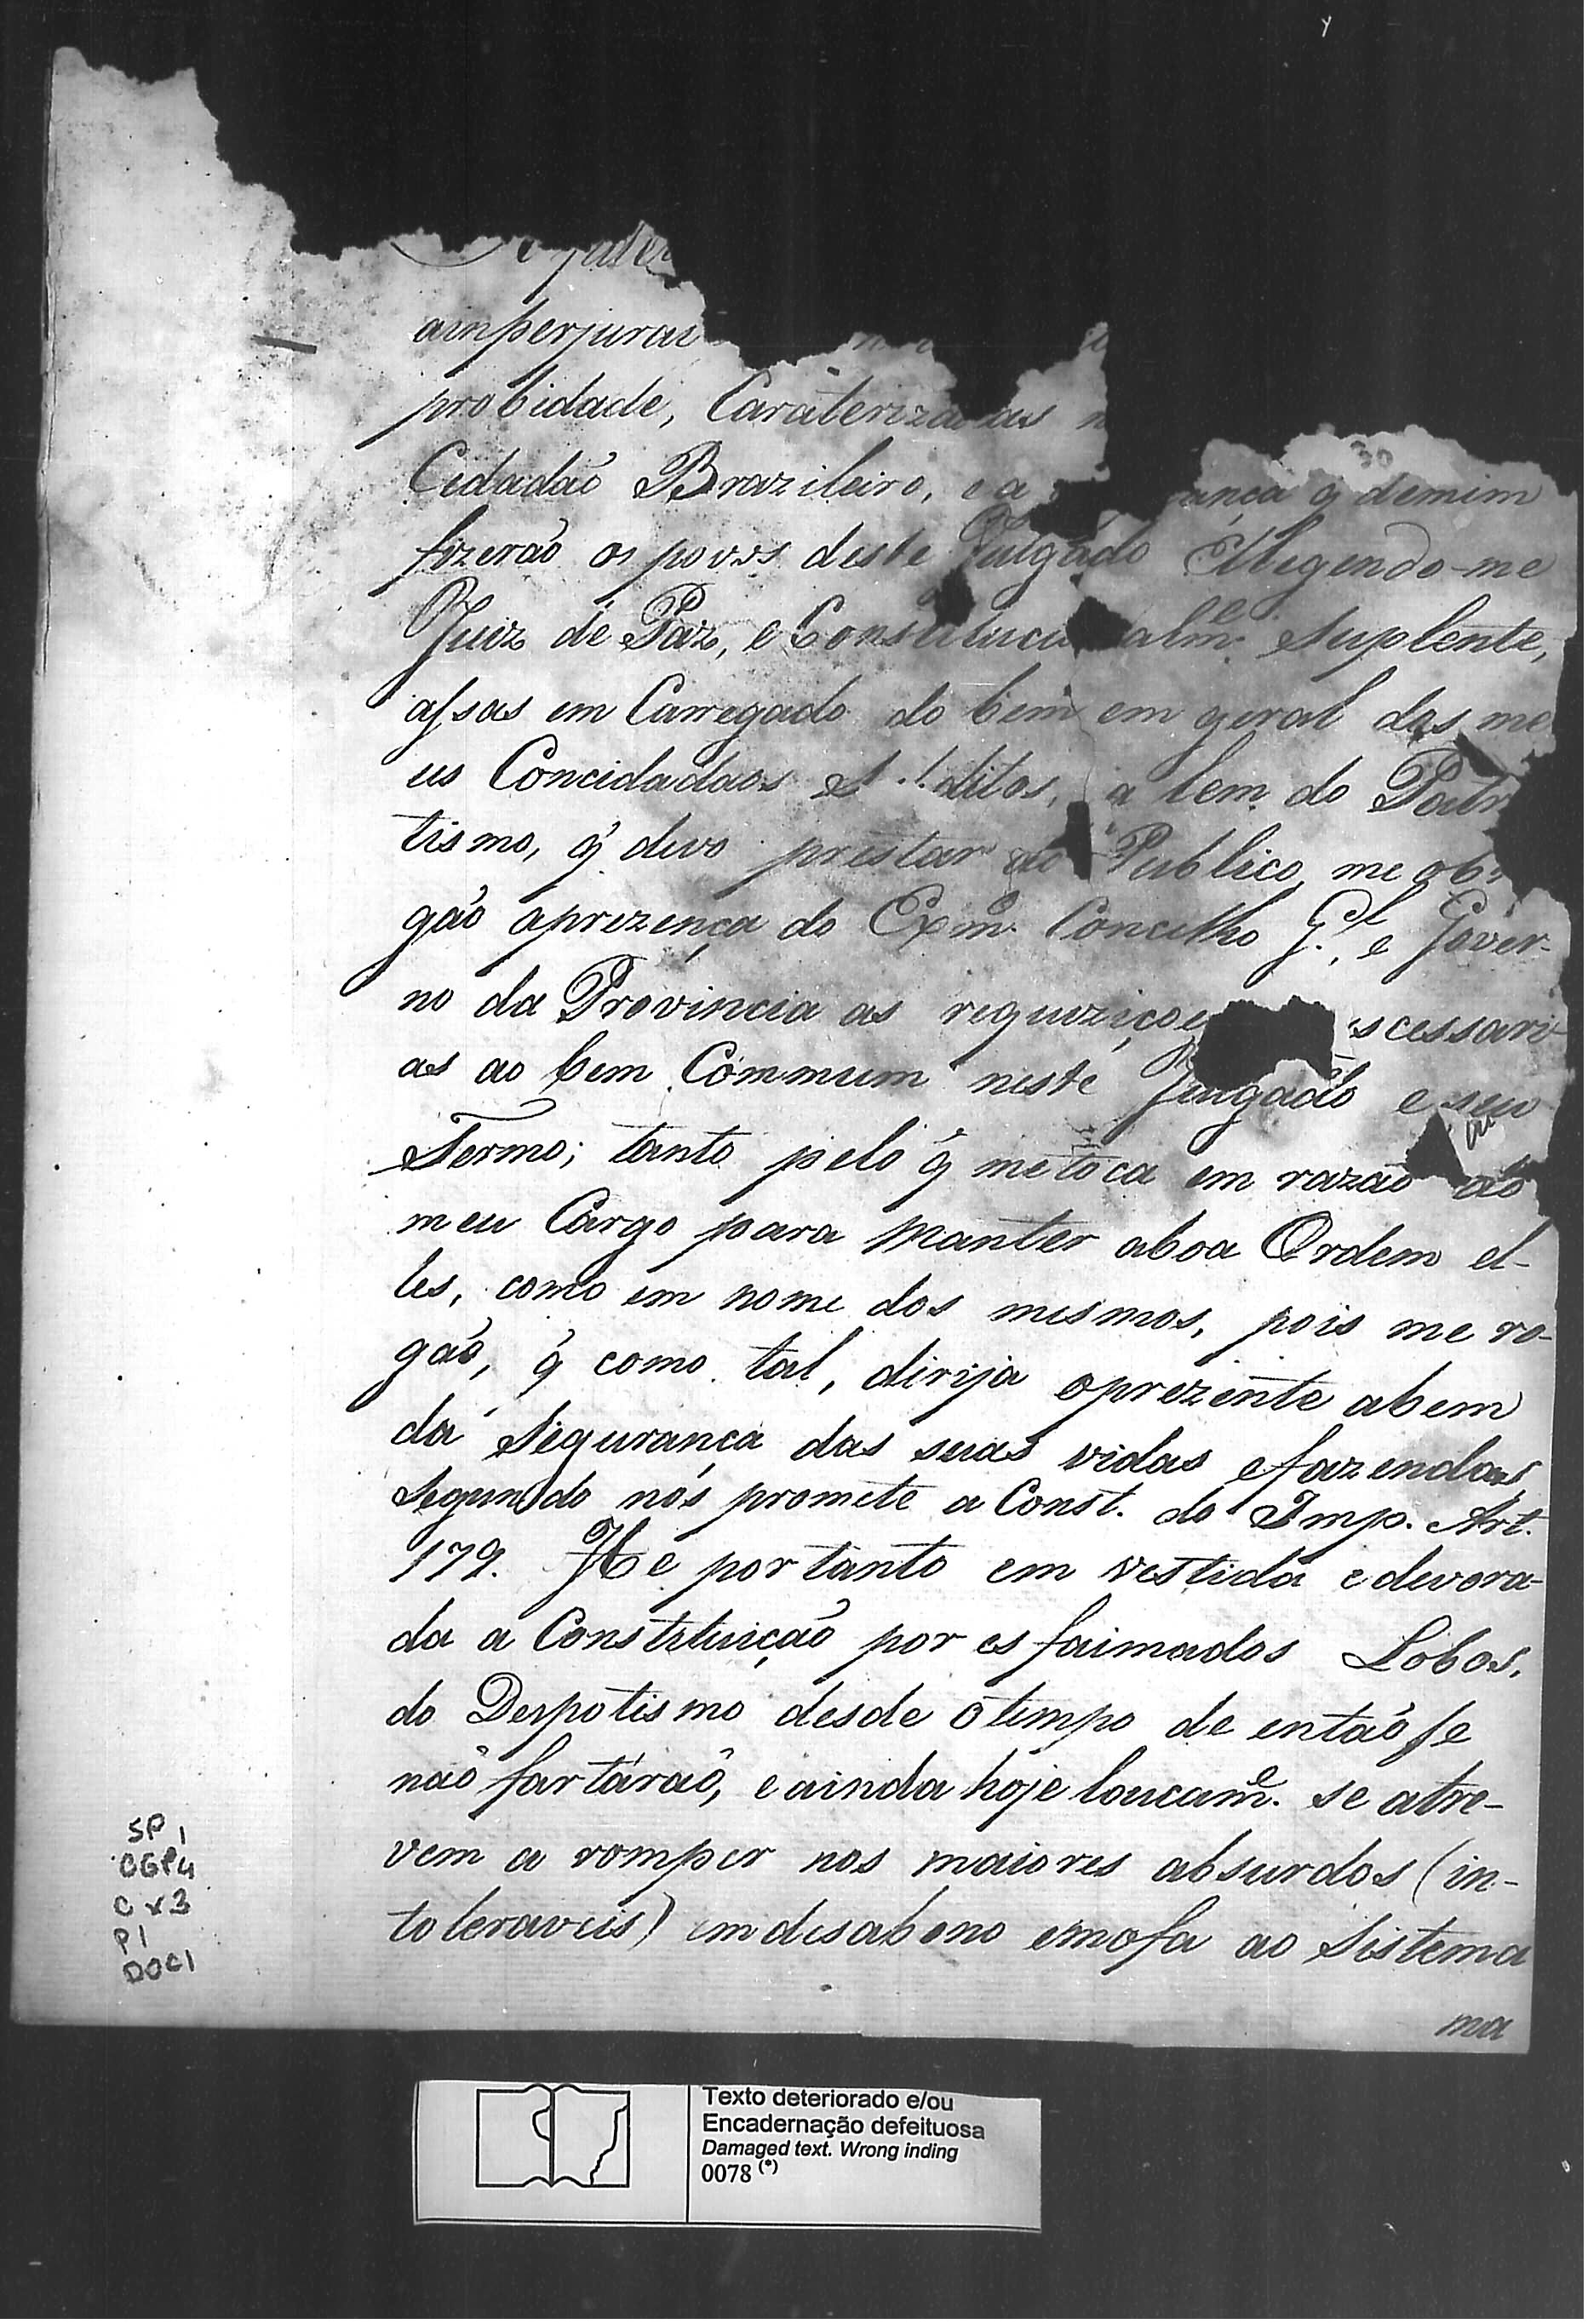 amperjurai
probidade, Caraterizadas
Cidadaõ Brazileiro, e a ança q̃ demim
fizeraõ os povos deste Julgádo Ellegendo-me
Juiz de Paz, e Constituci almᵉ. Suplente,
assas em Carregado do bem em geral dos me
us Concidadaos ditos, a lem do Patri
tismo, q̃ devo prestar ao Publico, me obri
gáo aprezença do Exmº. Concelho G.ˡ, e Gover-
no da Provincia as requiziçoe scessari-
as ao bem Commum neste Julgado e seu
Termo; tanto pelo q̃ metoca em razaõ do
meu Cargo para Manter aboa Ordem el-
les, como em nome dos mesmos, pois me ro-
gáo, q̃ como tal, dirija oprezente abem
da Segurança das suas vidas efazendas
Segundo nós promete a Const. do Imp. Art.
179. Hé portanto em vestida e devora-
da a Constituiçaõ por es faimados Lobos,
do Despotismo desde o tempo de entaõ se
naõ fartáraõ, e ainda hoje loucamᵉ. se atre-
vem a romper nos maiores absurdos (in-
toleraveis) em desabono emofa ao Sistema
ma
30
SP 1
CGP4
Cx3
P1
DOC1
Texto deteriorado e/ou
Encadernação defeituosa
Damaged text. Wrong inding
0078 (*)